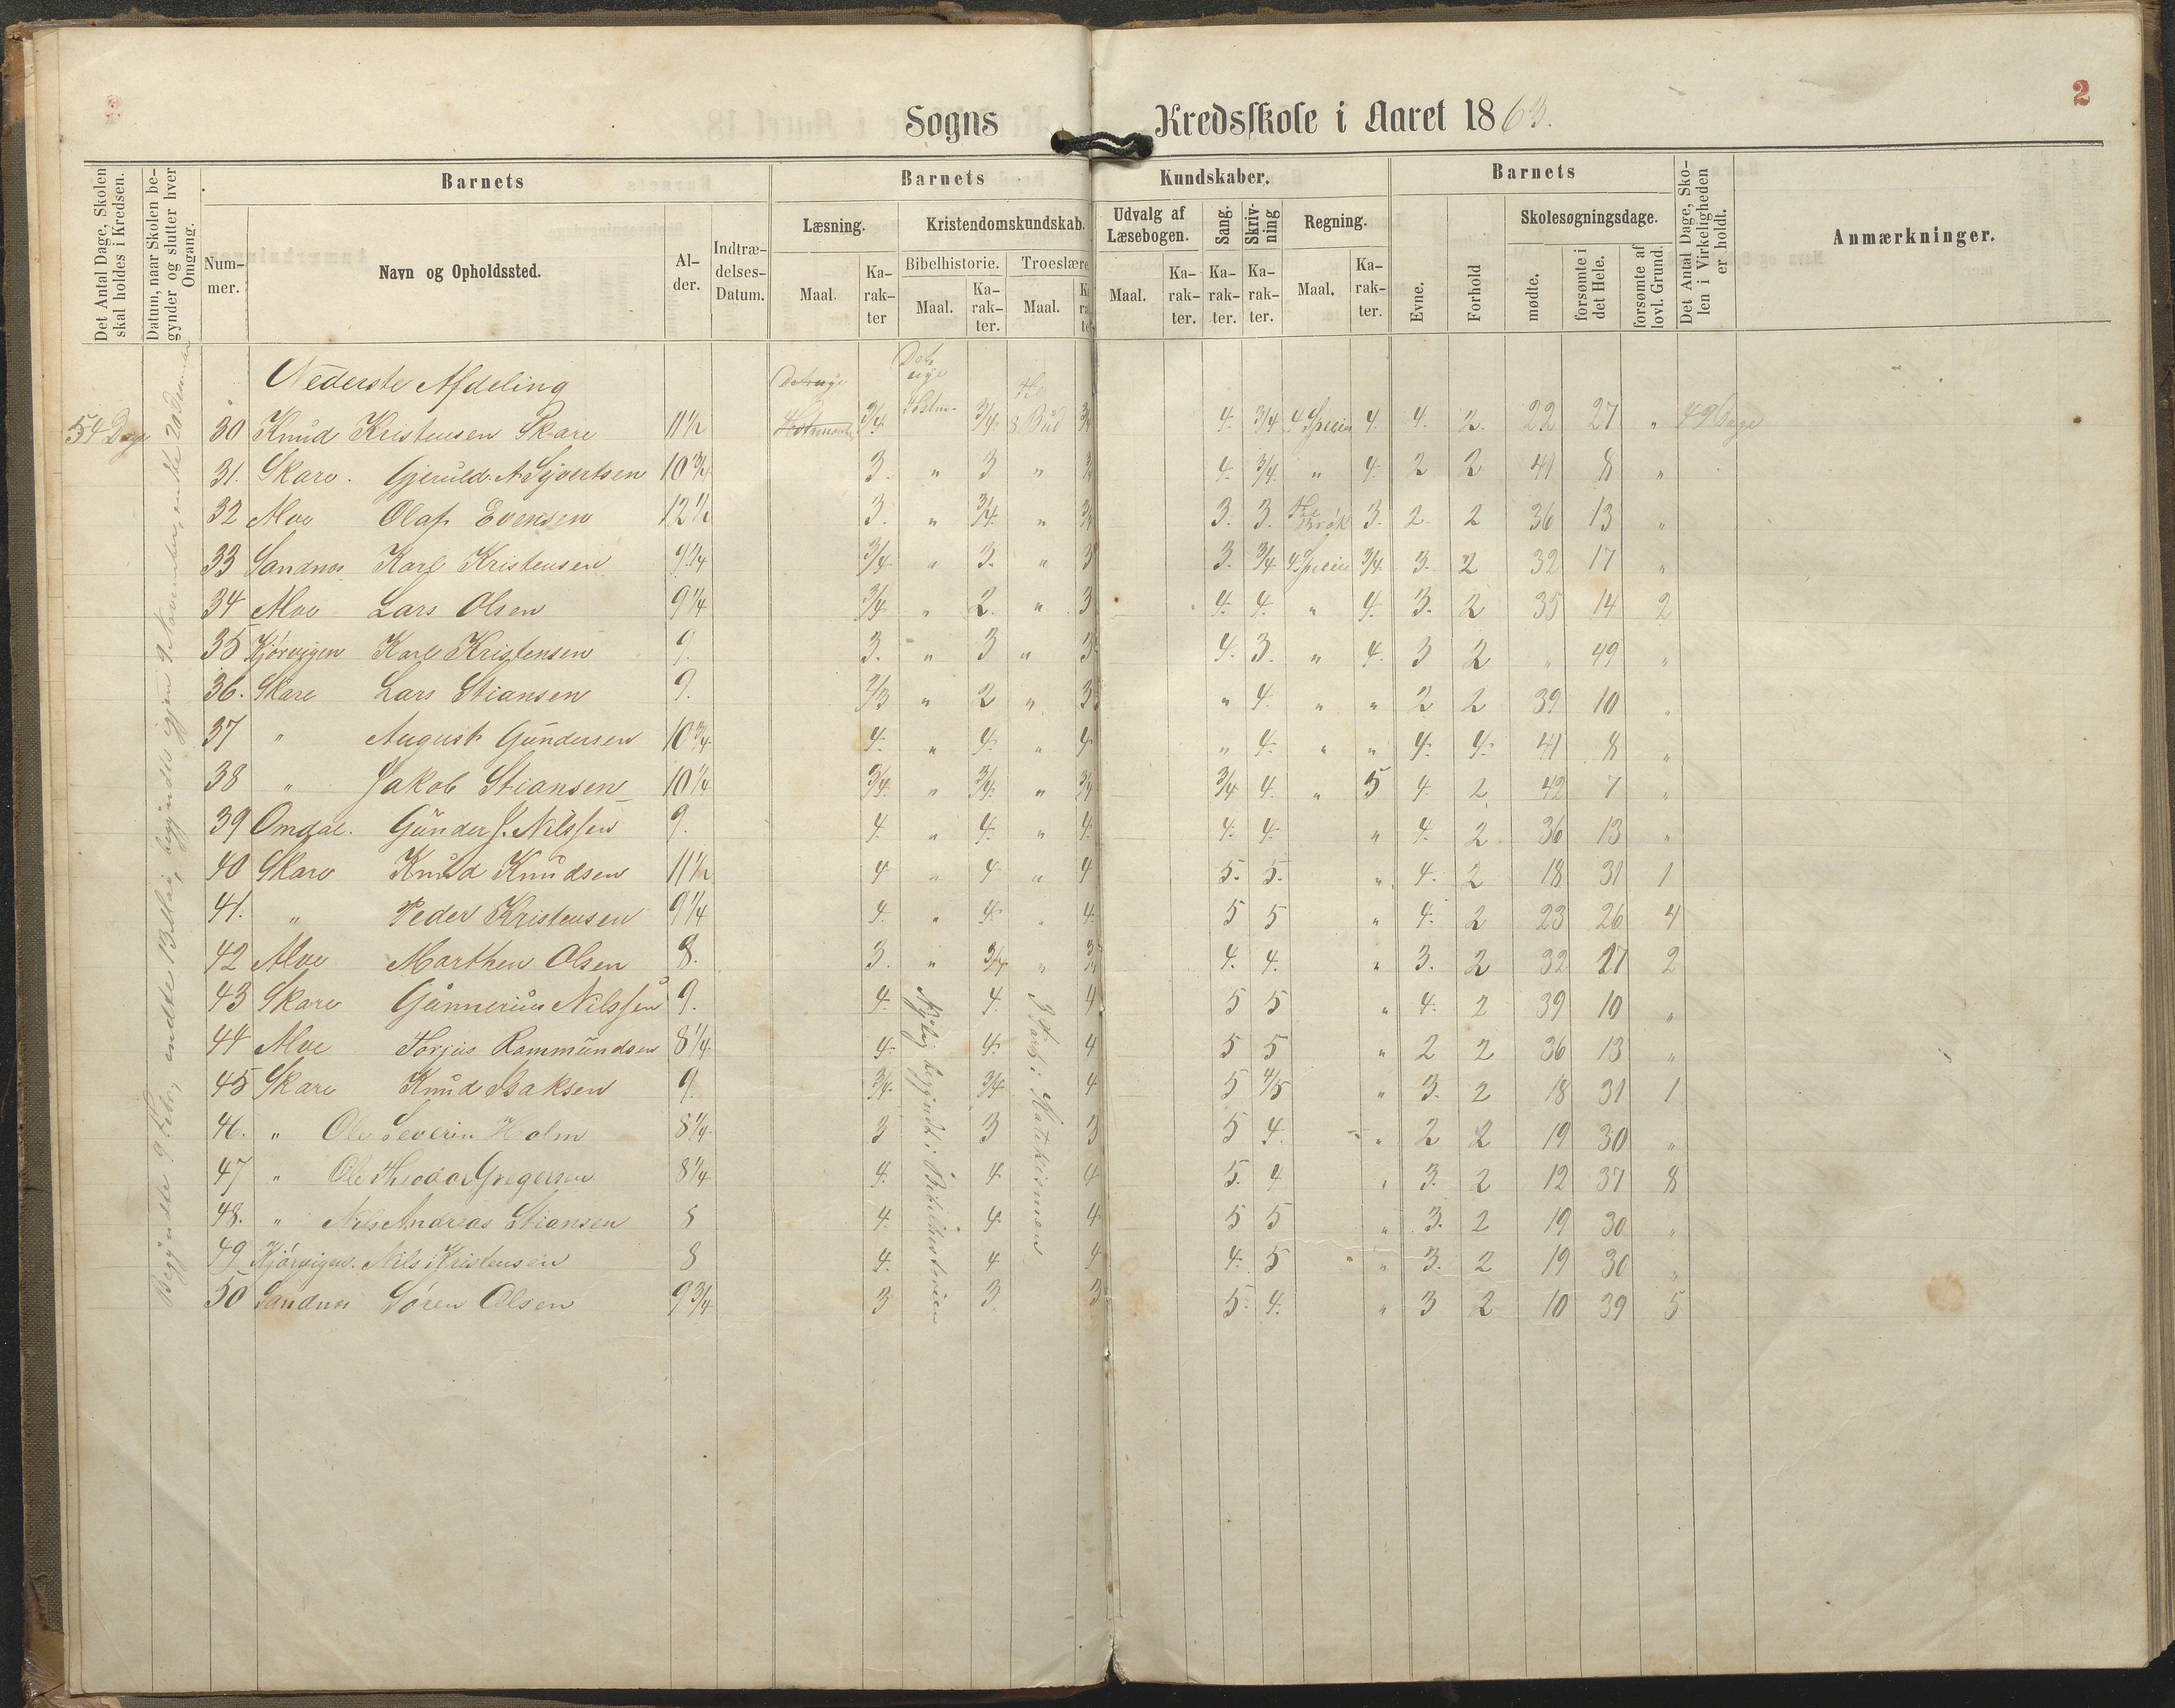 2
Sogns Kredsskole i Aaret 1863.
Det Antal Dage, Skolen skal holdes i Kredsen.
Datum, naar Skolen begynder og slutter hver Omgang.
Barnets
Nummer.
Navn og Opholdssted.
Alder.
Indtrædelses-Datum.
Barnets Kundskaber.
Læsning.
Maal.
Karakter
Kristendomskundskab.
Bibelhistorie.
Maal.
Karakter.
Troeslære
Maal.
Udvalg af Læsebogen.
Maal.
Karakter.
Sang.
Karakter.
Skrivning
Karakter.
Regning.
Maal.
Karakter.
Barnets
Evne.
Forhold
Skolesøgningsdage.
mødte.
forsømte i det Hele.
forsømte af lovl. Grund.
Det Antal Dage, Skolen i Virkeligheden er holdt.
Anmærkninger.
Nederste Afdeling
54 Dage 30 Knud Kristensen Skare 11½ 3/4 3/4 3/4 4. 3/4 4 Specier 4. 4. 2. 22 27 " 49 Dage
31. Skare. Gjeruld A. Sjvertsen 10¾ 3. " 3 " 3/4 4. 3/4 " 4. 2 2 41 8 "
32 Alve Olaf Evensen 12½ 3. " 3/4. " 3/4 3. 3. Brøk 3. 2. 2 36 13 "
33 Sandnes Karl Kristensen 9¼ 3/4 " 3. " 3 3. 3/4 4 Specier 3/4. 3. 2 32 17 "
34 Alve Lars Olsen 9¼ 3/4 " 2. " 3 4. 4. " 4. 3. 2 35 14 2
35 Kjörvigen Karl Kristensen 9. 3. " 3 " 3 4. 3. " 4. 3 2 " 49 "
36. Skare Lars Stiansen 9. 2/3 " 2 " 3 " 4. " " 2 2 39 10 "
37 " August Gundersen 10¾ 4. " 4. " 4 " 4. " " 4. 4. 41 8 "
38 " Jakob Stiansen 10¼ 3/4. " 3/4. " 3/4 3/4 4. " 5 4. 2 42 7 "
39 Omdal. Gunder J. Nilssen 9. 4. " 4. " 4. 4. 4. " 4. 2 36 13 "
40 Skare Knud Knudsen 11½ 4 " 4 " 4 5. 5. " 4. 2 18 31 1
41. " Peder Kristensen 9¼ 4. " 4. " 4. 5 5 " 4. 2 23 26 4
42 Alve Marthen Olsen 8. 3. " 3/4 " 3/4 4. 4. " 3. 2 32 17 2
43 Skare Gunnerius Nilssen 9. 4. 4. 4 5 5 " 4. 2 39 10 "
44 Alve Torjus Rommundsen 8¼ 4. 4. 4 5 5 " 2 2 36 13 "
45 Skare Knud Isaksen 9. 3/4. 3/4 4 5 4/5 " 3. 2 18 31 1
46. " Ole Severin Holm 8¼ 3 3 3 5 4. " 2 2 19 30 "
47 " Ole Theodor Gregersen 8¼ 4. 4 4 5. 4 " 3. 2 12 37 8
48. " Nils Andreas Stiansen 8 4. 4. 4 5 5 " 3. 2 19 30 "
49 Kjörvigen. Nils Kristensen 8 4. 4 4 4. 5 " 3. 2 19 30 "
50 Sandnes Sören Olsen 9¾ 3 3. 3 5. 4. " 3 2 10 39 5
Begyndte 9 Febr, endte 13 Mai, begyndtes igjen 9 November, endte 20 December
Nylig begyndt i Bibelhistorien
3 Part i Katekismen